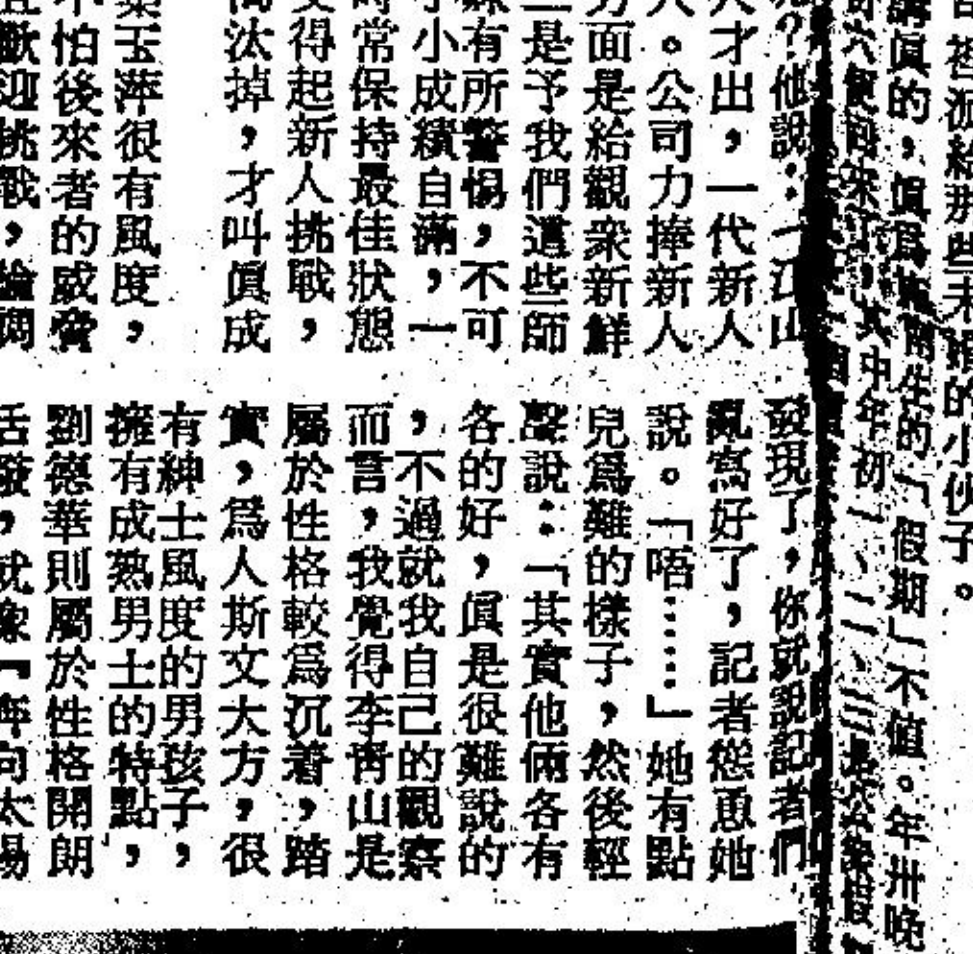 些未婚的小伙子。
講眞的，眞爲
生的「假期」不值。年卅晚
其中年初一、二、三是公衆假
？他說：「江山
人才出，一代新人
人。公司力捧新人
方面是給觀衆新鮮
二是予我們這些師
有所警惕，不可
小小成績自滿，一
時常保持最佳狀態
受得起新人挑戰，
淘汰掉，才叫眞成
葉玉萍很有風度，
不怕後來者的威脅
且歡迎挑戰，論調
發現了，你就說記者們
亂寫好了，記者慫恿她
說。「唔……」她有點
兒爲難的樣子，然後輕
聲說：「其實他倆各有
各的好，眞是很難說的
，不過就我自己的觀察
而言，我覺得李靑山是
屬於性格較爲沉着，踏
實，爲人斯文大方，很
有紳士風度的男孩子，
擁有成熟男士的特點，
劉德華則屬於性格開朗
活潑，就像『奔向太陽